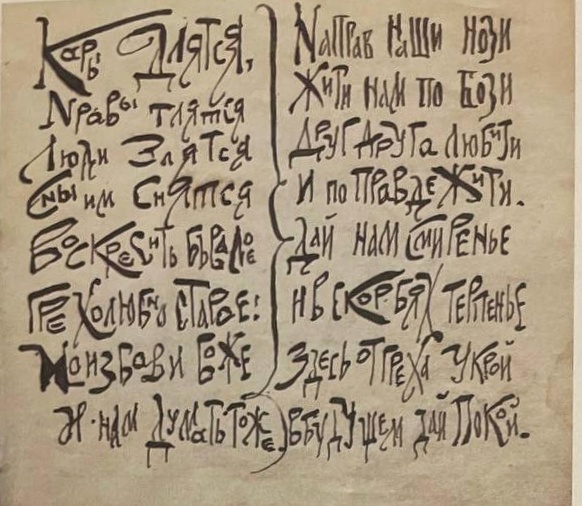 Кары Длятся,
Nравы тлятся
Люди Злятся
Сны им Снятся
Воскресить бывалое
Грехолюбно старое:
Но избави боже
И нам думать тоже.
Nаправ наши нози
Жити нам по Бози
Друг друга любити
И по Правде Жити.
Дай нам смиренье
И в скорбях терпенье
Здесь от греха укрой
В будущем дай Покой.